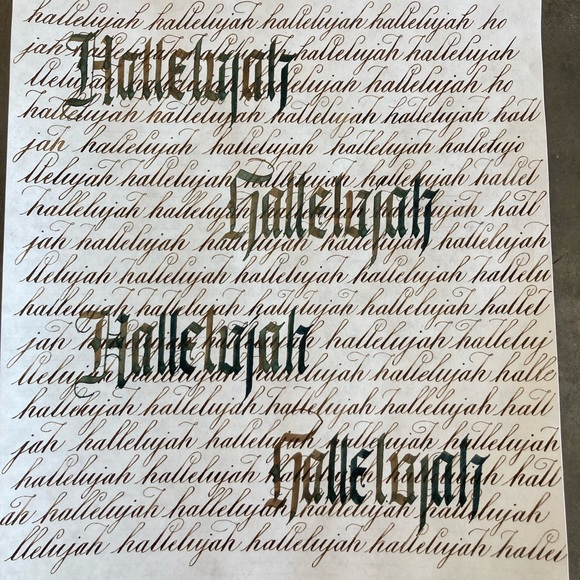 hallelujah hallelujah hallelujah hallelujah ho
jah hallelujah hallelujah hallelujah hallelujah
Hallelujah
llelujah hallelujah hallelujah hallelujah ho
hallelujah hallelujah hallelujah hallelujah hall
jah hallelujah hallelujah hallelujah hallelujo
llelujah hallelujah hallelujah hallelujah hallel
Hallelujah
hallelujah hallelujah hallelujah hallelujah hall
jah hallelujah hallelujah hallelujah hallelujah
llelujah hallelujah hallelujah hallelujah hallelu
hallelujah hallelujah hallelujah hallelujah hallel
jah hallelujah hallelujah hallelujah halleluj
Hallelujah
llelujah hallelujah hallelujah hallelujah halle
hallelujah hallelujah hallelujah hallelujah hall
jah hallelujah hallelujah hallelujah hallelujah
Hallelujah
hallelujah hallelujah hallelujah hallelujah hall
ah hallelujah hallelujah hallelujah hallelujah
llelujah hallelujah hallelujah hallelujah hallel